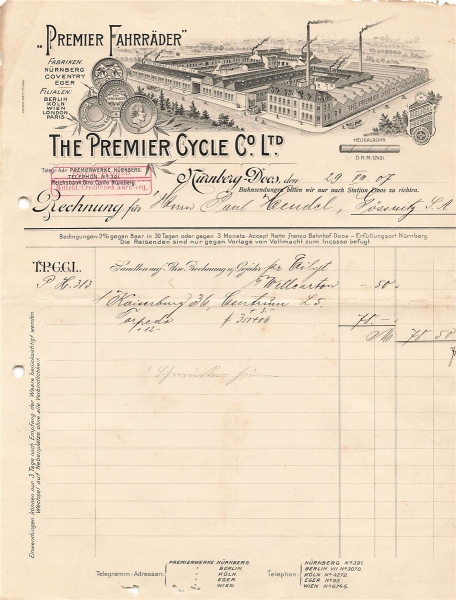 „PREMIER FAHRRÄDER”
FABRIKEN:
NÜRNBERG
COVENTRY
EGER
FILIALEN:
BERLIN
KÖLN
WIEN
LONDON
PARIS
HELICALROHR
D.R.M. 12431.
THE PREMIER CYCLE CO. LTD.
Telegr. Adr. PREMIERWERKE NÜRNBERG
TELEPHON No 391.
Reichsbank Giro Conto Nürnberg.
Nürnberg-Doos, den 29. VII. 07
Bahnsendungen bitten wir nur nach Station Doos zu richten.
Rechnung für Herrn Paul Hendel, Gössnitz S.A.
Bedingungen: 2% gegen Baar in 30 Tagen oder gegen 3 Monats-Accept Netto franco Bahnhof Doos – Erfüllungsort Nürnberg.
Die Reisenden sind nur gegen Vorlage von Vollmacht zum Incasso befugt
T.P.C.C.L. Sandten auf Ihre Rechnung u. Gefahr per Eilgt
P H. 313 1 Wellcarton —50
1 Kaiserburg 36 Centrum L 5.
Torpedo # 351406 70.—
+12- M 70.50
Einwendungen können nur 3 Tage nach Empfang der Waare berücksichtigt werden
Wechsel auf Nebenplätze ohne alle Verbindlichkeit.
Telegramm-Adressen: PREMIERWERKE NÜRNBERG
BERLIN.
KÖLN.
EGER.
WIEN.
Telephon: NÜRNBERG No 391.
BERLIN VII No 3070.
KÖLN No 4272.
EGER No 95.
WIEN No 6746.